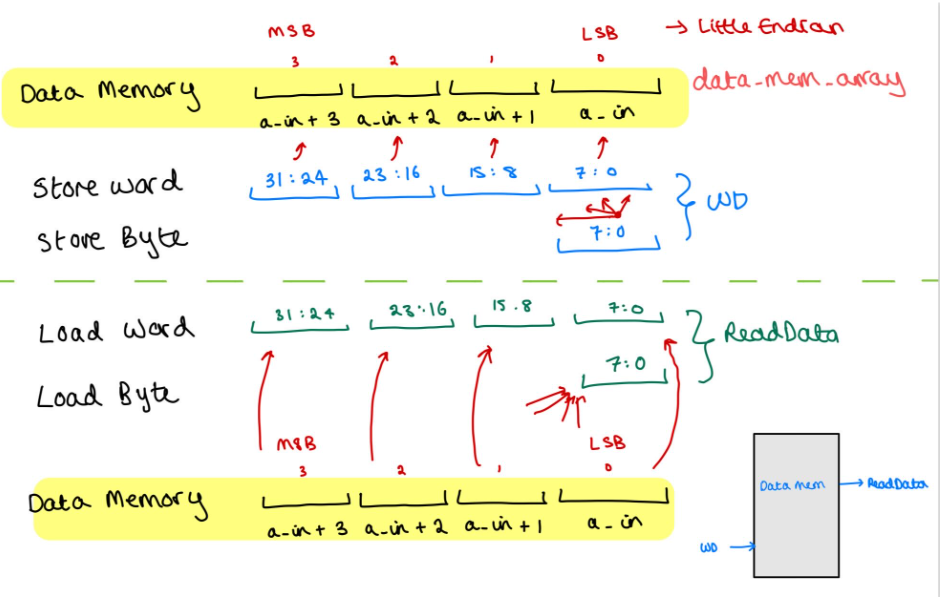 MSB LSB → Little Endian
3 2 1 0
Data Memory data-mem-array
a-in + 3 a-in + 2 a-in + 1 a-in
Store word 31:24 23:16 15:8 7:0
WD
Store Byte 7:0
Load Word 31:24 23:16 15.8 7:0
ReadData
Load Byte 7:0
MSB LSB
3 2 1 0
Data Memory
a-in + 3 a-in + 2 a-in + 1 a-in
Data Mem → ReadData
WD →